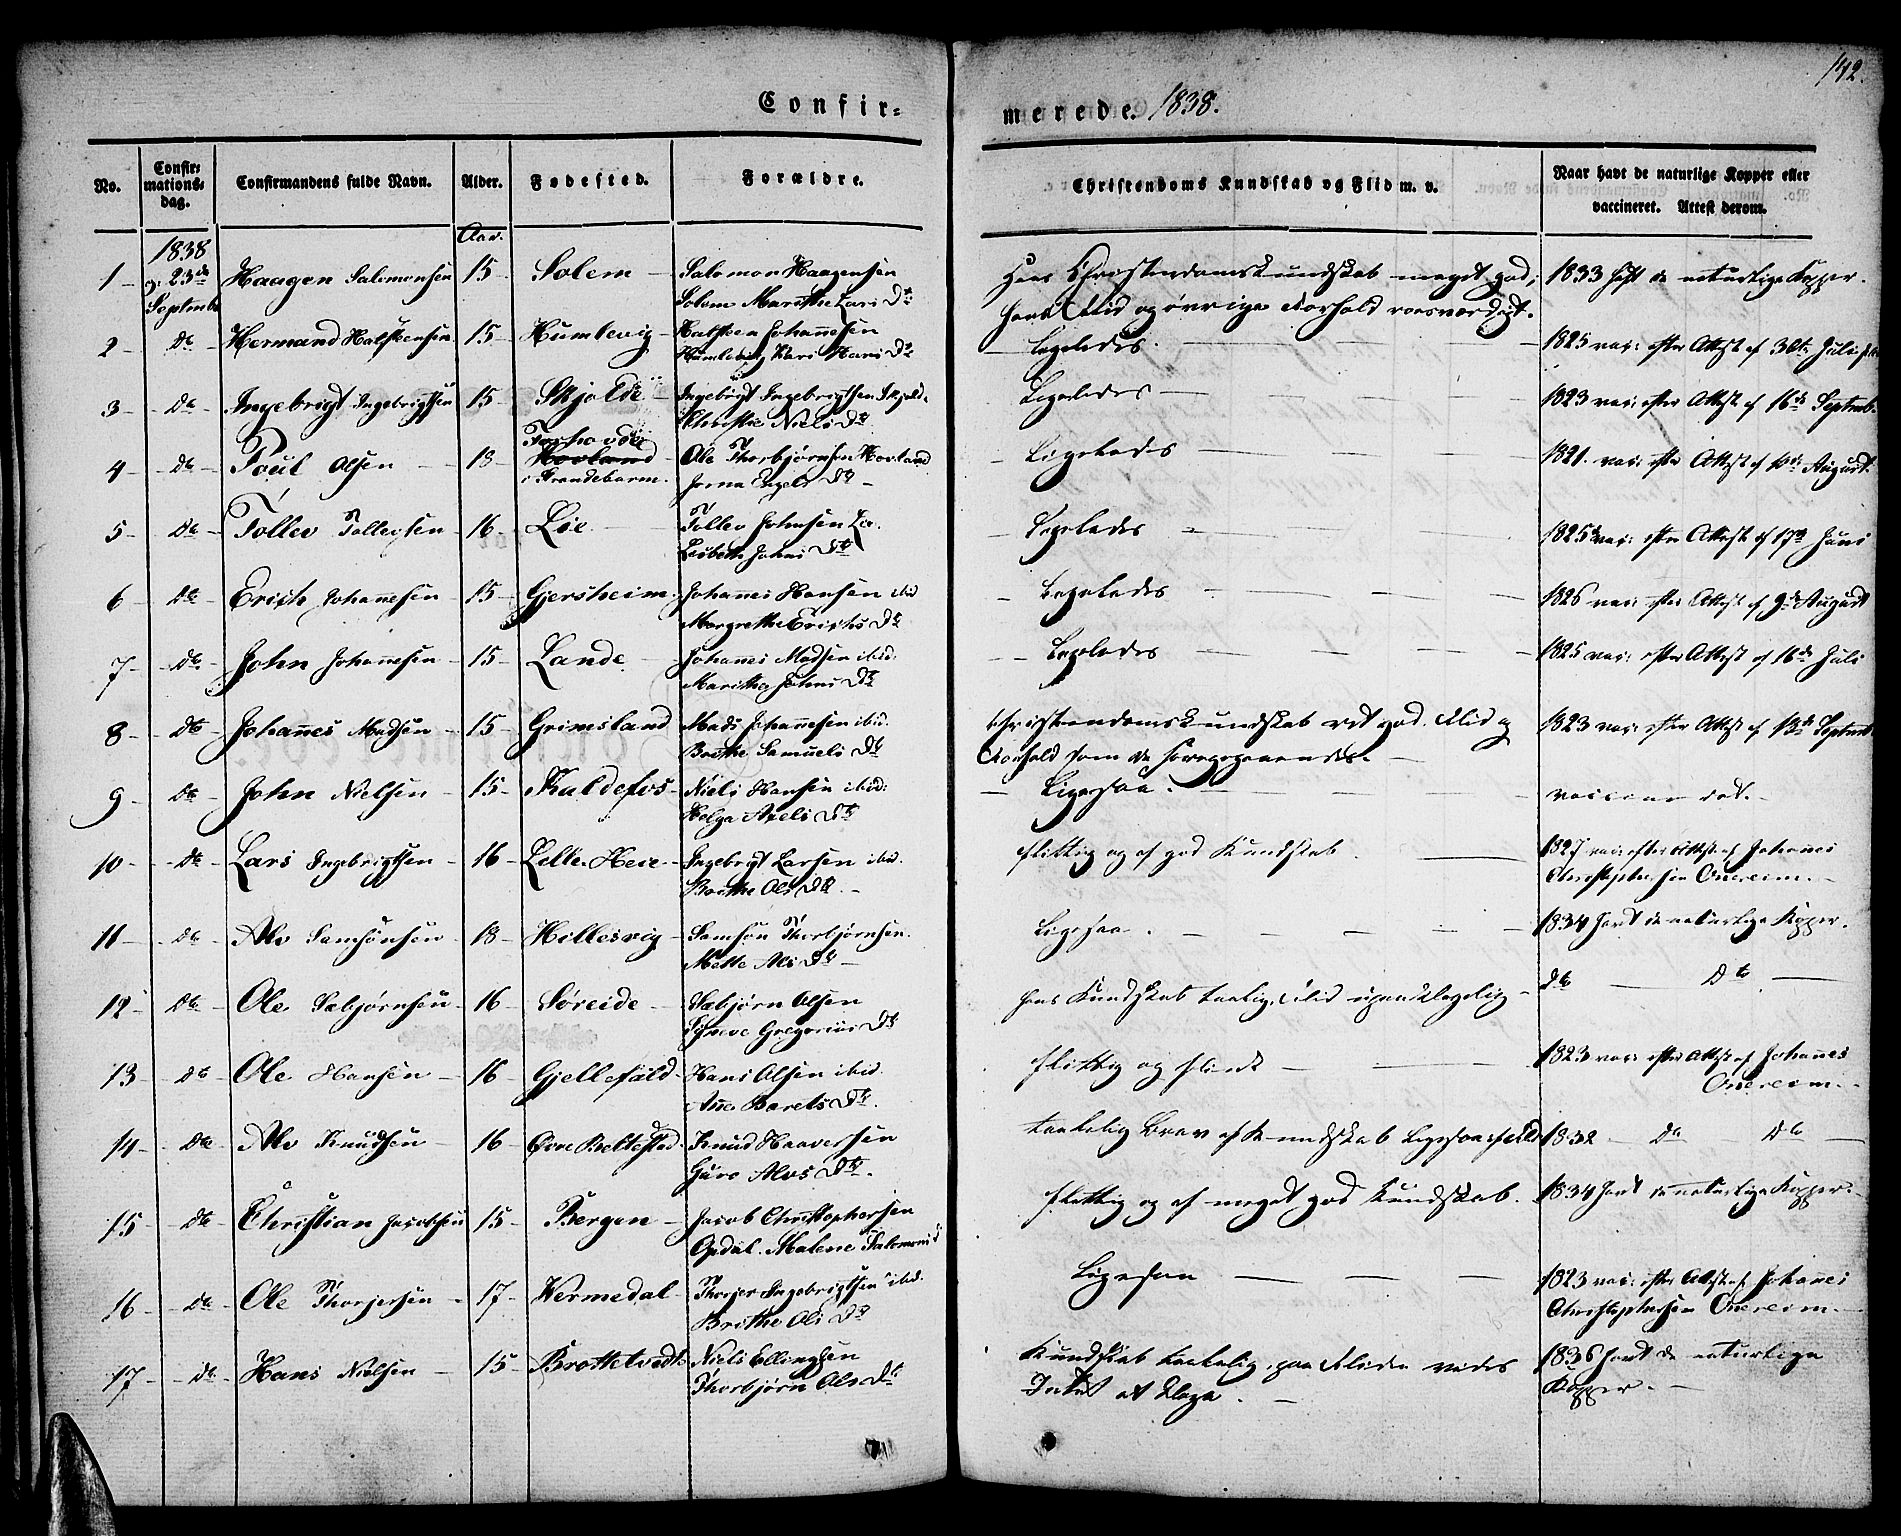 142.
Confir=
merede. 1838.
No.
Confir=
mations=
dag.
Confirmandens fulde Navn.
Alder.
Fødested.
Forældre.
Christendoms Kundskab og Flid m. v.
Naar havt de naturlige Kopper eller
vaccineret. Attest derom.
Aar.
1838
1 – 23de Haagen Salomonsen 15 – Solem – Salomon Haagensen
Septemb
Solem Marithe Lars Dtr
Hans Christendomskundskab meget god;
hans Flid og øvrige Forhold roesværdigt.
1833 haft de naturlige Kopper.
2 – Do – Hermand Halsteensen 15 – Humlevig – Halsteen Johañesen
Humlevig Kari Hans Dtr
Ligeledes.
1825 vac: efter Attest af Juli
3 – Do – Ingebrigt Ingebrigtsen 15 – Skjolde – Ingebrigt Ingebrigtsen Skjold
Christhe Niels Dtr
Ligeledes
1823 vac: efter Attest af 16de Septemb.
4 – Do – Poul Olsen – 18 – Hovland – Ole Thorbjørnsen Hovland
i Strandebarm. Engels Dtr –
Ligeledes
1821. vac: efter Attest af August.
5 – Do – Tollev Tollevsen – 16 – Lie – Tollev Johnsen
Lisbeth Johns Dtr
Ligeledes
1825 vac: efter Attest af 17de Juni
6 – Do – Erich Johañesen – 15 – Gjersheim – Johannes Hansen ibid
Margrethe Erichs Dtr
Ligeledes
1826 vac: efter Attest af 9de August
7 – Do – John Johañesen – 15 – Lande – Johannes Madsen ibid.
Maritha Johns Dtr
Ligeledes
1825 vac: efter Attest af 16de Juli
8 – Do – Johañes Madsen – 15 – Grimsland Mads Johañesen ibid.
Brithe Samuels Dtr
Christendomskundskab ret god. Flid og
Forhold som de foregaaendes. –
1823 vac: efter Attest af 13de Septemb
9 – Do – John Nielsen – 15 – Kaldefos – Niels Hansen ibid:
Helga Axels Dtr
Ligesaa.
vaccineret. –
10 – Do – Lars Ingebrigtsen – 16 – Lille Heie – Ingebrigt Larsen ibid.
Brithe Ols Dtr. –
flittig og af god Kundskab.
1827 vac: efter Attest af Johanes
Christophersen Onereim. –
11 – Do – Alv Samsonsen – 18 – Hillesvig – Samson Thorbjørnsen.
Mette Als Dtr –
Ligesaa.
1834 havt de naturlige Kopper.
12 – Do – Ole Sæbjørnsen – 16 – Søreide – Sæbjørn Olsen
Gregorius Dtr
hans Kundskab taalelig, Flid upaaklagelig –
Do – Do –
13 – Do – Ole Hansen – 16 – Gjellefald – Hans Olsen ibid.
Añe Barets Dtr.
flittig og flink –
1823 vac: efter Attest af Johanes
Onereim. –
14 – Do – Alv Knudsen – 16 – Øvre Beltested – Knud Haaversen
Guro Alvs Dtr.
taalelig Kundskab
1832 – Do – Do –
15 – Do – Christian Jacobsen 15 – Bergen – Jacob Christophersen
Opdal. Malene Salomons D
flittig og af meget god Kundskab.
1834 havt de naturlige Kopper. –
16 – Do – Ole Thorjersen – 17 – Vermedal – Thorjer Ingebrigtsen ibid.
Brithe Ols Dtr
Ligesaa
1823 vac: efter Attest af Johanes
Christophersen Onereim. –
17 – Do – Hans Nielsen – 15 – Brottetvedt Niels Ellingsen
Thorbjørn Ols Dtr
Kundskab taalelig, paa Fliden vides
Intet at klage. –
1836 havt de naturlige
Kopper. –